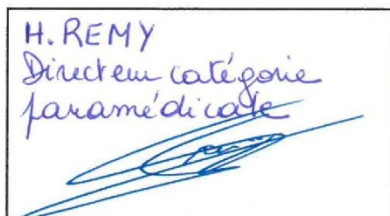 H. REMY
Directeur catégorie
paramédicale